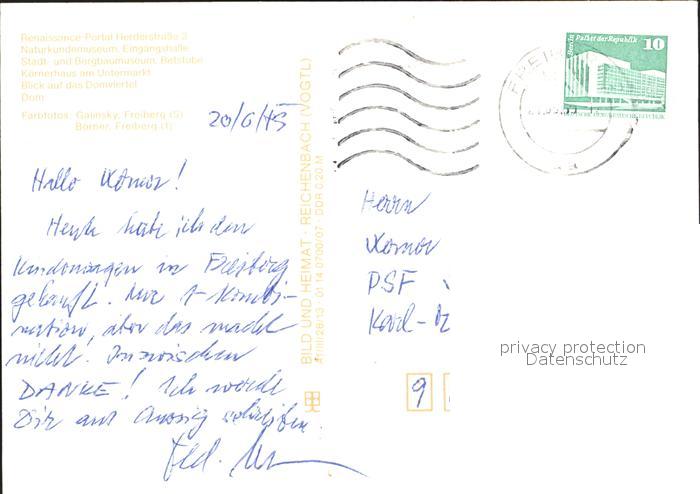 Renaissance-Portal Herderstraße 2
Naturkundemuseum, Eingangshalle
Stadt- und Bergbaumuseum, Betstube
Körnerhaus am Untermarkt
Blick auf das Domviertel
Dom
Farbfotos: Galinsky, Freiberg (5)
Börner, Freiberg (1)
20/6/
Hallo
Heute habe ich den
Kinderwagen in Freiberg
gekauft. Nur 1 Kombi-
nation, aber das macht
nicht. Inzwischen
DANKE! Ich werde
Dir aus schreiben.
BILD UND HEIMAT · REICHENBACH (VOGTL)
A1/III/26/13 · 01 14 0700/07 · DDR 0,20 M
Berlin Palast der Republik
10
DEUTSCHE DEMOKRATISCHE REPUBLIK
FREIB
Herrn
PSF
Karl-
9
privacy protection
Datenschutz